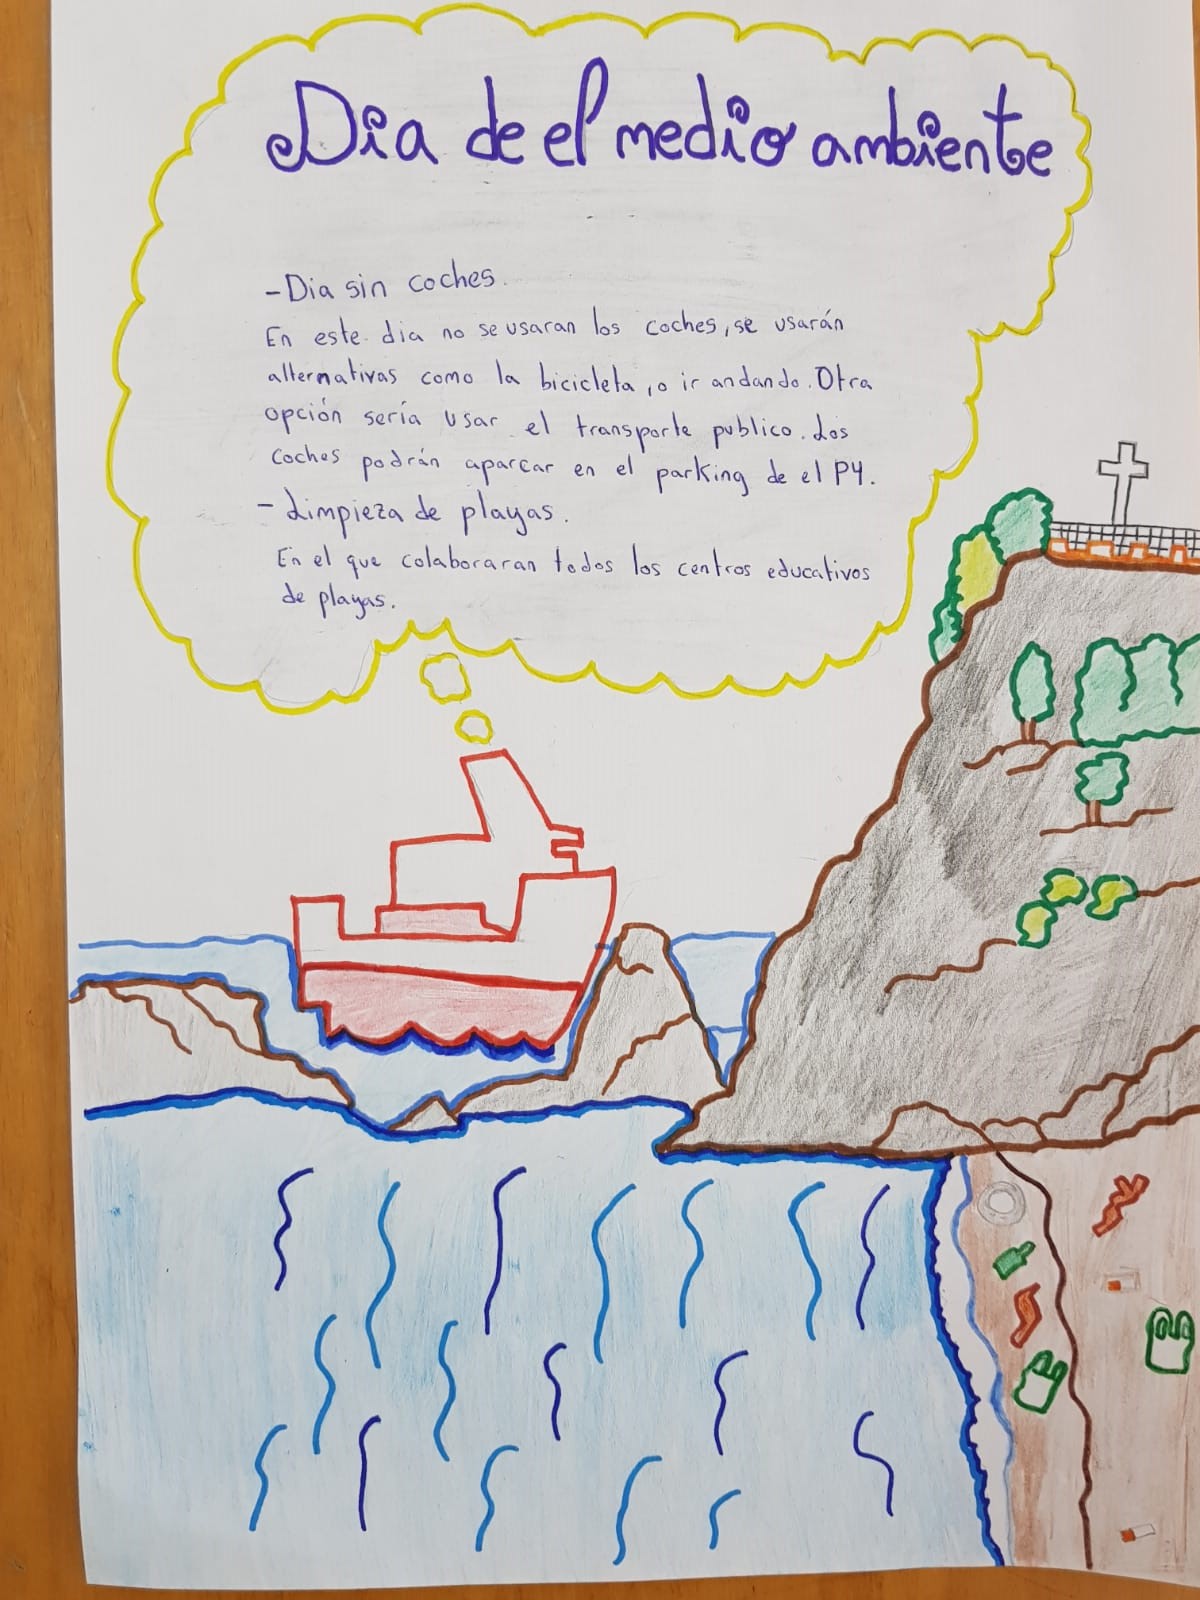 Dia de el medio ambiente
- Dia sin coches.
En este dia no se usaran los coches, se usarán
alternativas como la bicicleta, o ir andando. Otra
opción sería usar el transporte publico. Los
coches podrán aparcar en el parking de el P4.
- Limpieza de playas.
En el que colaboraran todos los centros educativos
de playas.